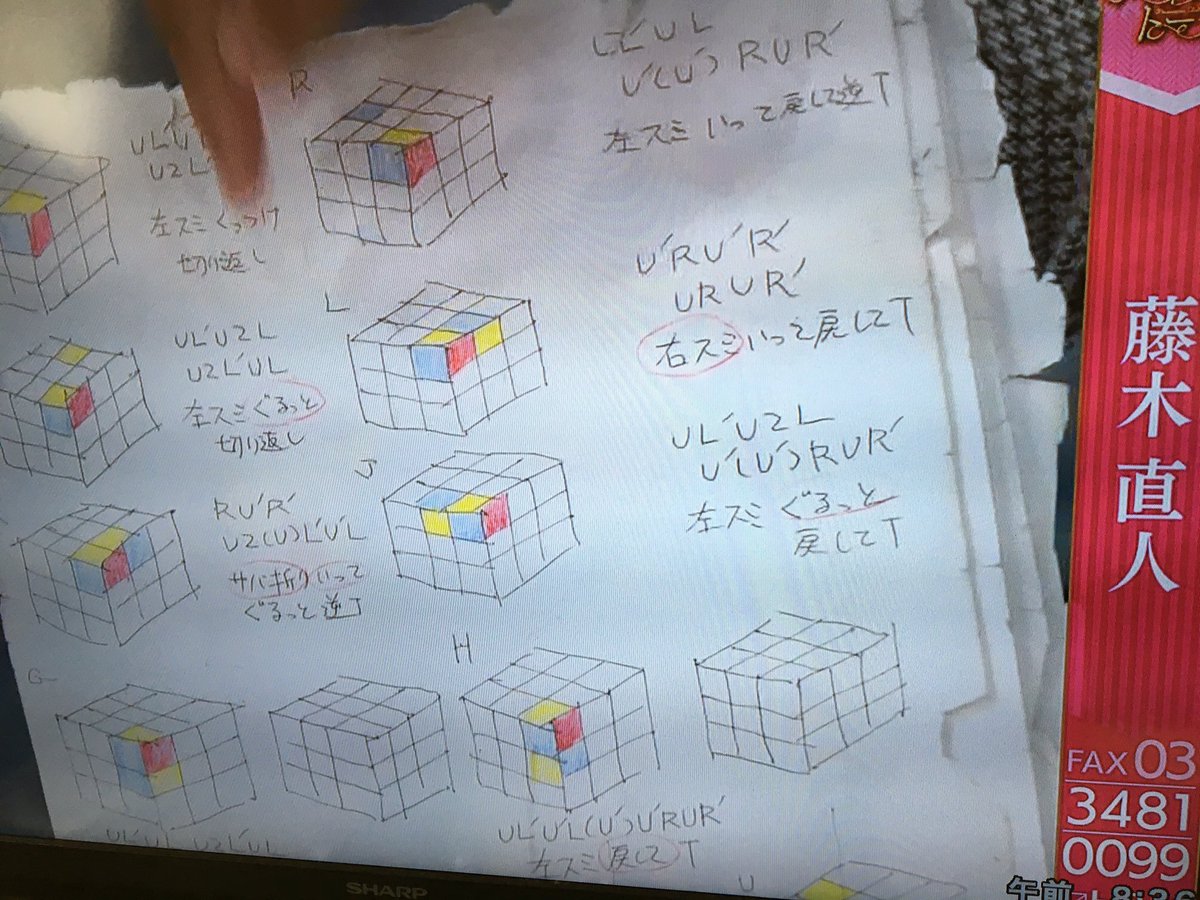 R
L'U L
U'(U') R U R'
左スミ いって戻して逆T
U2L'
左スミ くっつけ
切り返し
L
U'RU'R'
URUR'
右スミいって戻してT
UL'U2L
U2L'UL
左スミぐるっと
切り返し
J
UL'U2L
U'(U')RUR'
左スミ ぐるっと
戻してT
RU'R'
U2(U)L'U'L
サバ折りいって
ぐるっと逆T
G
H
UL'U'L(U')U'RUR'
左スミ戻してT
UL'U'L U2L'UL
U
SHARP
藤木直人
FAX 03
3481
0099
午前